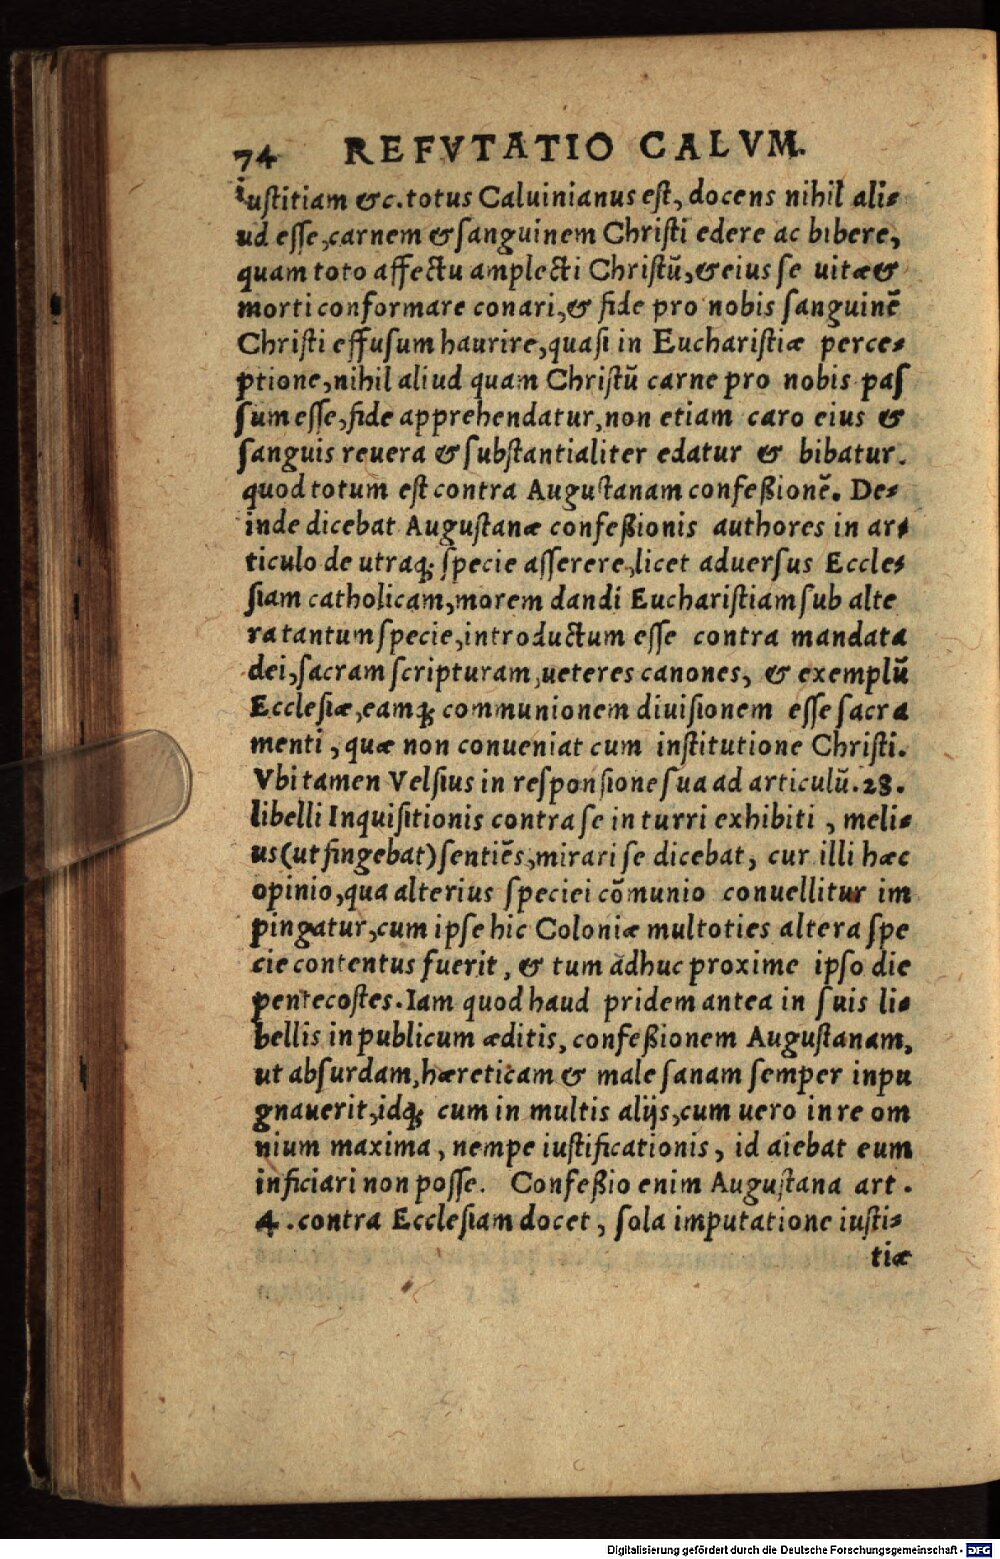 74 REFVTATIO CALVM.
iuſtitiam &c. totus Caluinianus eſt, docens nihil ali-
ud eſſe, carnem & ſanguinem Chriſti edere ac bibere,
quam toto affectu amplecti Chriſtū, & eius ſe uitæ &
morti conformare conari, & fide pro nobis ſanguinē
Chriſti effuſum haurire, quaſi in Euchariſtiæ perce-
ptione, nihil aliud quam Chriſtū carne pro nobis paſ
ſum eſſe, fide apprehendatur, non etiam caro eius &
ſanguis reuera & ſubſtantialiter edatur & bibatur.
quod totum eſt contra Auguſtanam confeßionē. De-
inde dicebat Auguſtanæ confeßionis authores in ar-
ticulo de utraq; ſpecie aſſerere, licet aduerſus Eccle-
ſiam catholicam, morem dandi Euchariſtiam ſub alte
ra tantum ſpecie, introductum eſſe contra mandata
dei, ſacram ſcripturam, ueteres canones, & exemplū
Eccleſiæ, eamq; communionem diuiſionem eſſe ſacra
menti, quæ non conueniat cum inſtitutione Chriſti.
Vbi tamen Velſius in reſponſione ſua ad articulū. 28.
libelli Inquiſitionis contra ſe in turri exhibiti, meli-
us (ut fingebat) ſentiēs, mirari ſe dicebat, cur illi hæc
opinio, qua alterius ſpeciei cōmunio conuellitur im
pingatur, cum ipſe hic Coloniæ multoties altera ſpe
cie contentus fuerit, & tum adhuc proxime ipſo die
pentecoſtes. Iam quod haud pridem antea in ſuis li-
bellis in publicum æditis, confeßionem Auguſtanam,
ut abſurdam, hæreticam & male ſanam ſemper inpu
gnauerit, idq; cum in multis alijs, cum uero in re om
nium maxima, nempe iuſtificationis, id aiebat eum
inficiari non poſſe. Confeßio enim Auguſtana art.
4. contra Eccleſiam docet, ſola imputatione iuſti-
tiæ
Digitalisierung gefördert durch die Deutsche Forschungsgemeinschaft - DFG